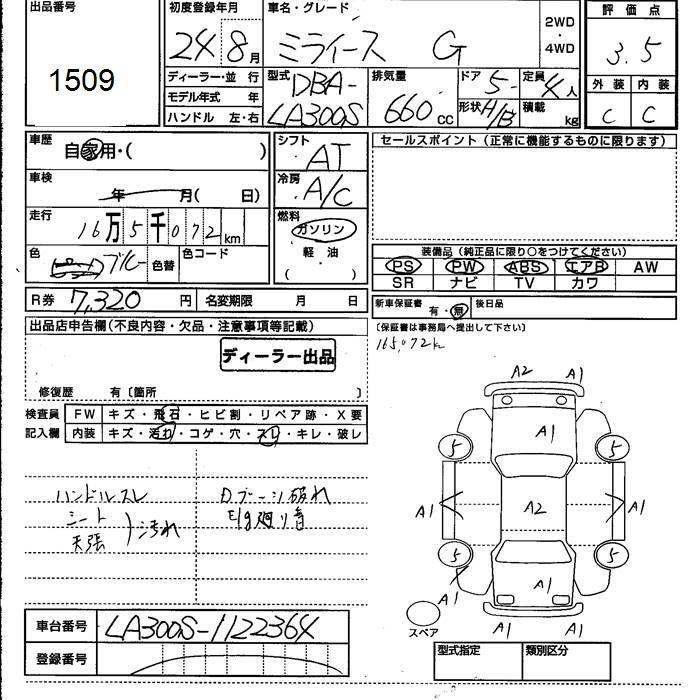 出品番号
1509
初度登録年月
24 8月
車名・グレード
ミライース G
2WD
・
4WD
評価点
3.5
外装 内装
C C
ディーラー・並 行
モデル年式 年
ハンドル 左・右
型式
DBA-
LA300S
排気量
660cc
ドア 5
形状 H/B
定員 4人
積載 kg
車歴
自家用・( )
車検
年 月( 日)
走行
16万5千072km
色
ブルー
色替
色コード
シフト
AT
冷房
A/C
燃料
ガソリン
軽・油
( ・ )
セールスポイント(正常に機能するものに限ります)
装備品(純正品に限り○をつけてください)
PS PW ABS エアB AW
SR ナビ TV カワ
R券 7,320円
名変期限 月 日
新車保証書 有・無
後日品
(保証書は事務局へ提出して下さい)
165,072k
出品店申告欄(不良内容・欠品・注意事項等記載)
ディーラー出品
修復歴 有〔箇所 〕
検査員 FW キズ・飛石・ヒビ割・リペア跡・X要
記入欄 内装 キズ・汚れ・コゲ・穴・スレ・キレ・破レ
ハンドルスレ
シート
天張
汚れ
Dブーツ破れ
E/g廻り音
A2 A1
A1
5 5
A1 A2 A1
5 5
A1
A1 A1
A1 A1
スペア
車台番号 LA300S-1122364
登録番号
型式指定 類別区分